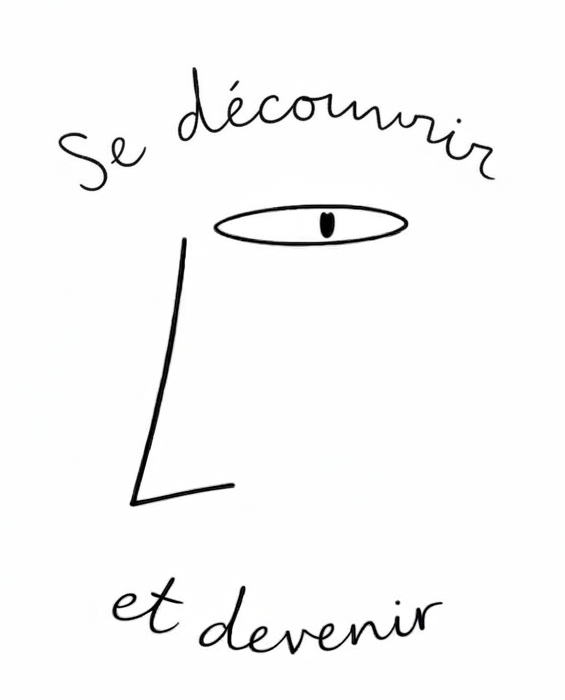 Se découvrir
et devenir